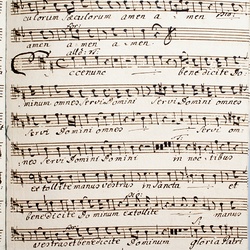 culorum Saeculorum amen a men
amen a men a men
cce nunc benedicite Do
minum omnes Servi Domini Servi Domini omnes
Servi Domini omnes Servi om
nes Servi Domini Domini in noctibus
extollite manus vestras in Sancta et
benedicite Dominum extollite manus
vestras et benedicite Dominum gloria Patri